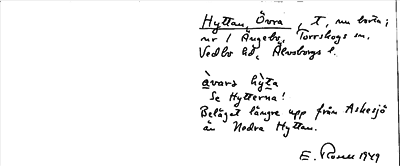 Hyttan, Övra, t, nu borta;
nr 1 Ängebo, Torrskogs sn,
Vedbo hd, Älvsborgs l.
àvara hỳta
Se Hytterna!
Beläget längre upp från Askesjö
än Nedra Hyttan.
E. Rosell 1949